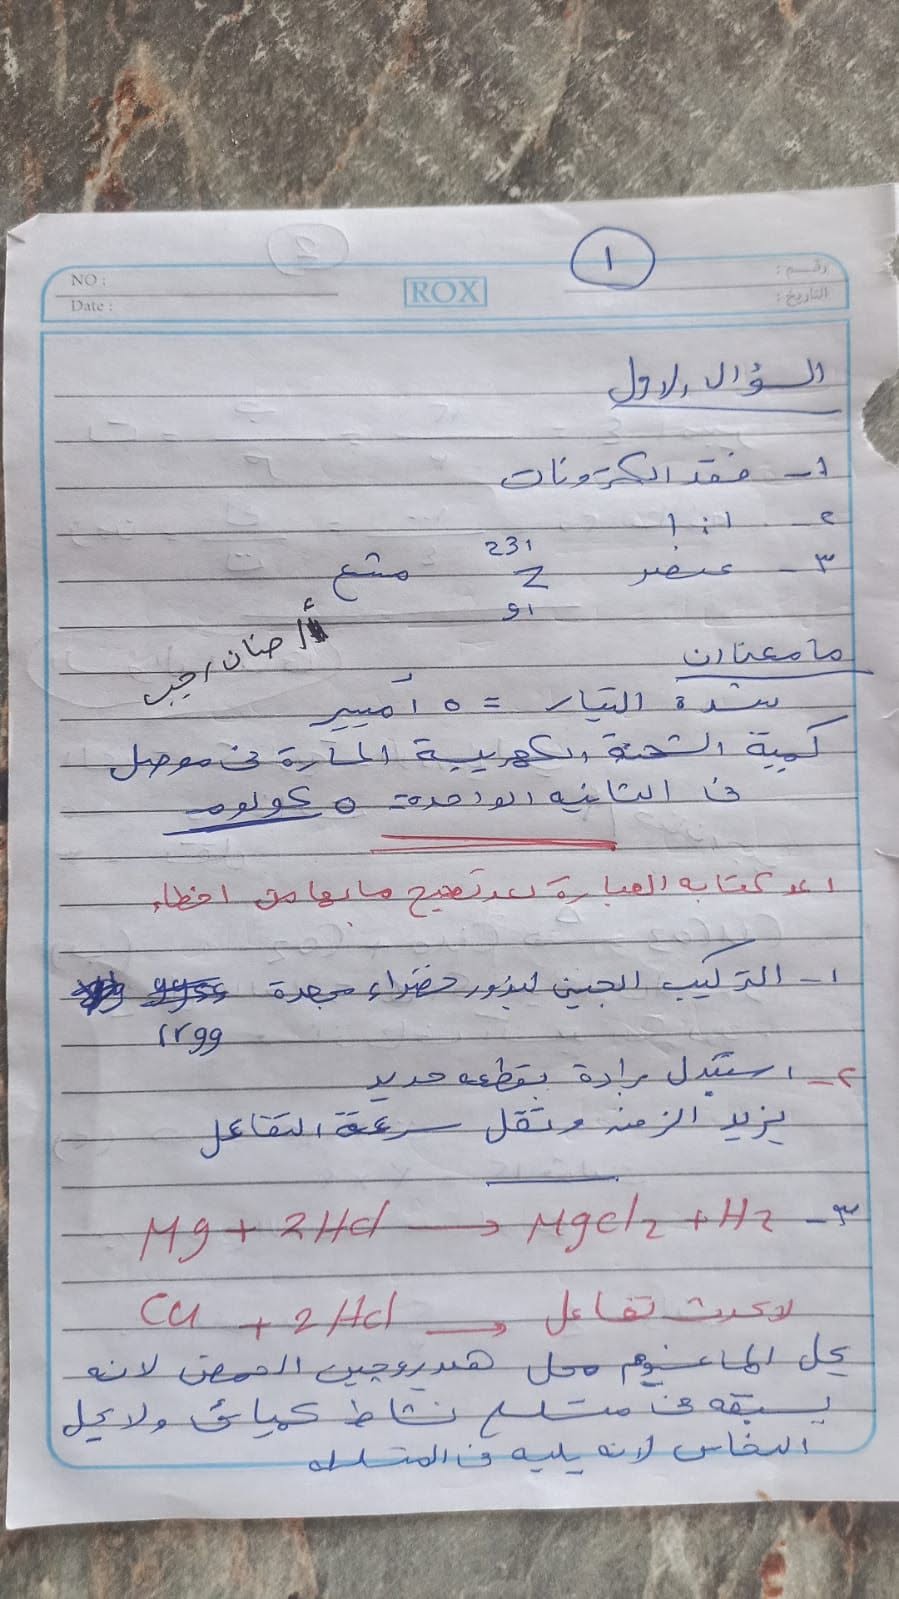 ١
NO :
ROX
رقم :
Date :
التاريخ :
السؤال الاول
١- فقد الكترونات
٢- ١ : ١
٣- عنصر 231 Z 91 مشع
أ/ حنان رجب
ما معنى ان
شدة التيار = ٥ أمبير
كمية الشحنة الكهربية المارة فى موصل
فى الثانيه الواحدة ٥ كولوم
اعد كتابه العبارة بعد تصحيح ما بها من اخطاء
١- التركيب الجينى لبذور خضراء مجعدة
٢- استبدل برادة بقطعه حديد
يزيد الزمن وتقل سرعة التفاعل
٣- Mg + 2Hcl → Mgcl2 + H2
Cu + 2Hcl → لا يحدث تفاعل
يحل الماغنسيوم محل هيدروجين الحمض لانه
يسبقه فى متسلسلة نشاط كميائى ولا يحل
النحاس لانه يليه فى المتسلسله